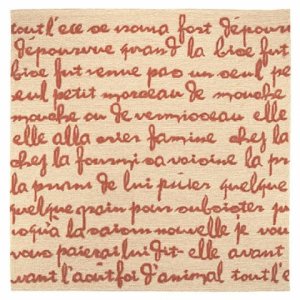 tout l'ete se trouva fort dépourv
dépourvue quand la bise fut
bise fut venue pas un seul pe
seul petit morceau de mouche
mouche ou de vermisseau elle
elle alla crier famine chez la
chez la fourmi sa voisine la pr
la priant de lui prêter quelque
quelque grain pour subsister ju
jusqu'à la saison nouvelle je vou
vous paierai lui dit-elle avant
avant l'août foi d'animal tout l'e